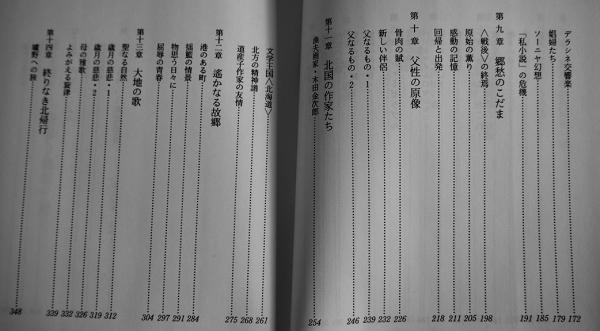 デラシネ交響楽……172
娼婦たち……179
ソーニャ幻想……185
「私小説」の危機……191
第九章　郷愁のこだま
〈戦後〉の終焉……198
原始の薫り……205
感動の記憶……211
回帰と出発……218
第十章　父性の原像
骨肉の賦……226
新しい伴侶……232
父なるもの・1……239
父なるもの・2……246
第十一章　北国の作家たち
漁夫画家・木田金次郎……254
文学王国〈北海道〉……261
北方の精神譜……268
道産子作家の友情……275
第十二章　遥かなる故郷
港のある町……284
揺籃の情景……291
物思う日々に……297
屈辱の青春……304
第十三章　大地の歌
聖なる自然……312
歳月の慈悲・1……319
歳月の慈悲・2……326
母の雅歌……332
よみがえる旋律……339
第十四章　終りなき北帰行
曠野への旅……348